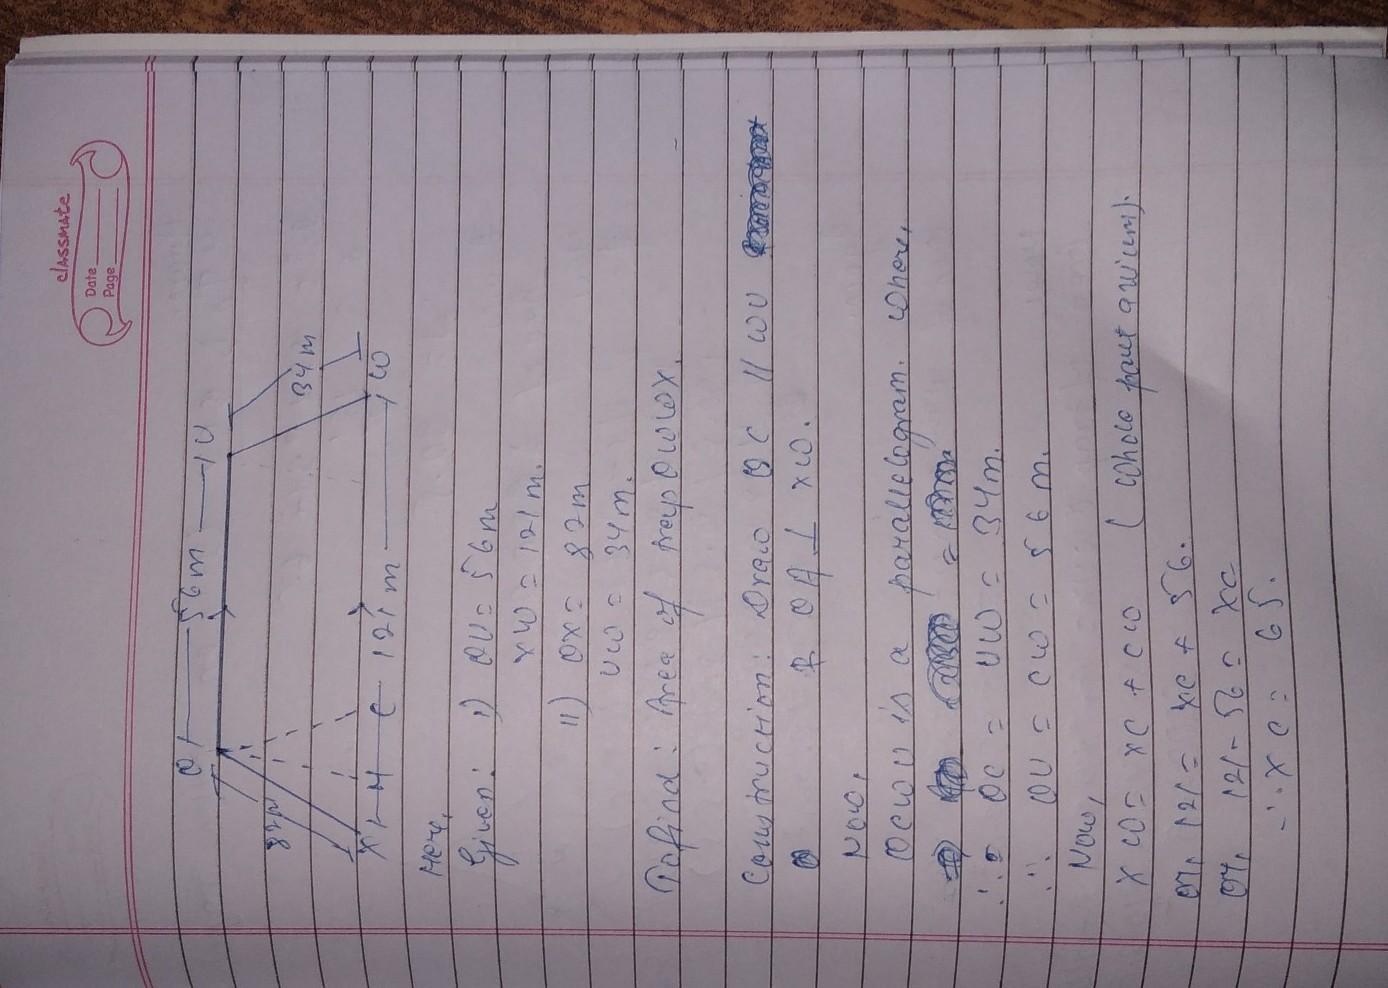 classmate
Date
Page
O 56m U
82m
34m
X H C 121m W
Here,
Given: i) OU = 56m
XW = 121m.
ii) OX = 82m
UW = 34m.
Tofind: Area of trap OUWX.
Construction: Draw OC // WU
& OH ⊥ XW.
Now,
OCWU is a parallelogram. Where,
∴ OC = UW = 34m.
∴ OU = CW = 56m.
Now,
XW = XC + CW ( Whole part axium).
or, 121 = XC + 56.
or, 121 - 56 = XC
∴ XC = 65.